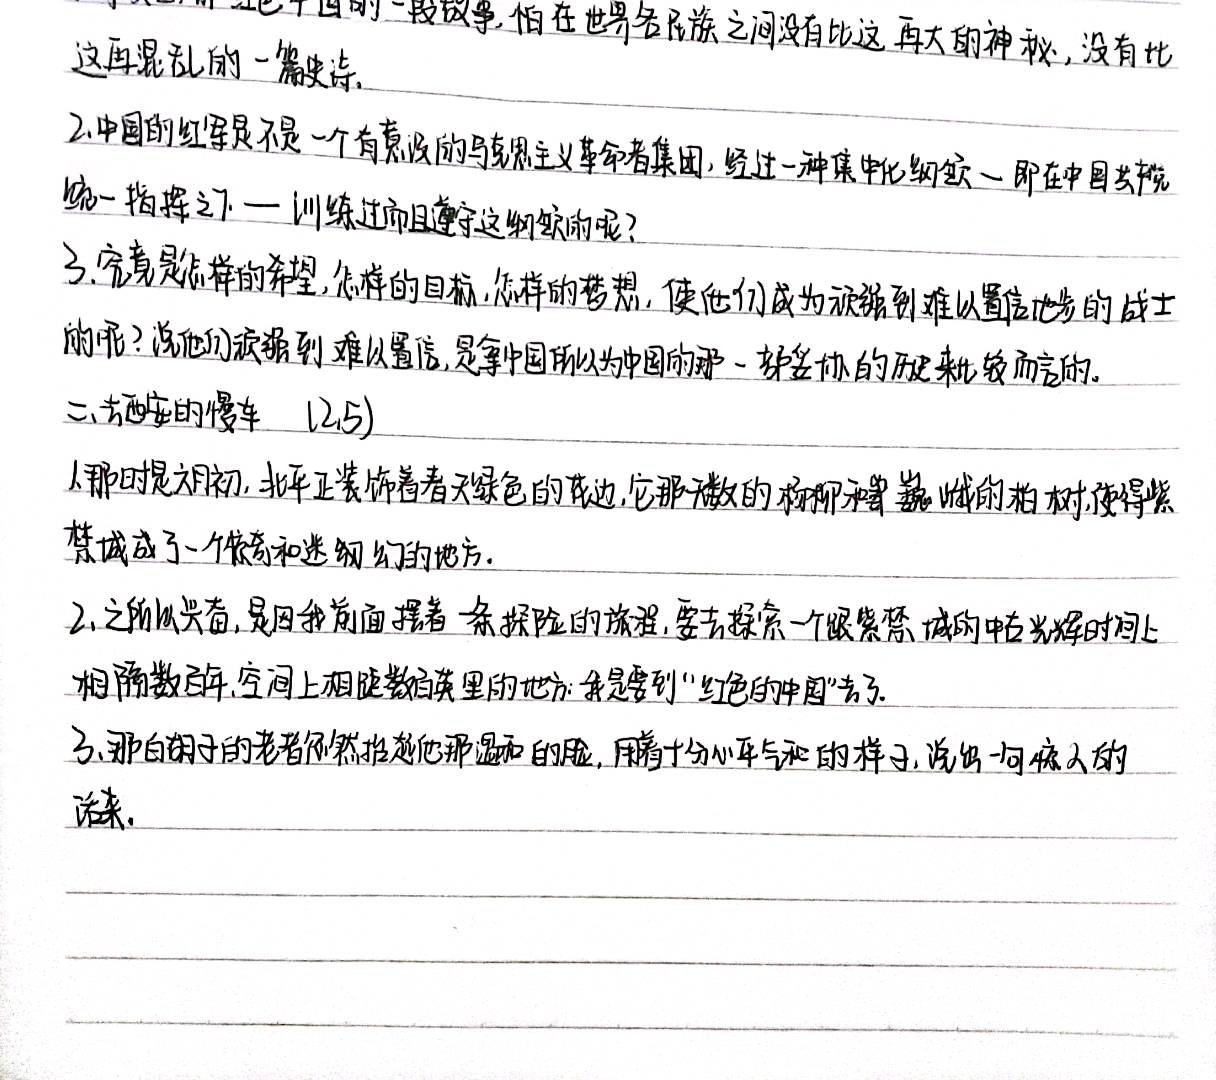 红色中国的一段故事，怕在世界各民族之间没有比这再大的神秘，没有比
这再混乱的一篇史诗。
2.中国的红军是不是一个有意识的马克思主义革命者集团，经过一种集中化纲领—即在中国共党
统一指挥之下—训练过而且遵守这纲领的呢？
3.究竟是怎样的希望，怎样的目标，怎样的梦想，使他们成为顽强到难以置信地步的战士
的呢？说他们顽强到难以置信，是拿中国所以为中国的那一部妥协的历史来比较而言的。
二、去西安的慢车 (2.5)
1.那时是六月初，北平正装饰着春天绿色的花边，它那无数的杨柳和巍峨的柏树，使得紫
禁城成了一个惊奇和迷幻的地方。
2、之所以兴奋，是因我前面摆着一条探险的旅程，要去探索一个跟紫禁城的中古光辉时间上
相隔数百年，空间上相距数百英里的地方：我是要到“红色的中国”去了。
3、那白胡子的老者仍然抬起他那温和的脸，用着十分心平气和的样子，说出一句惊人的
话来。